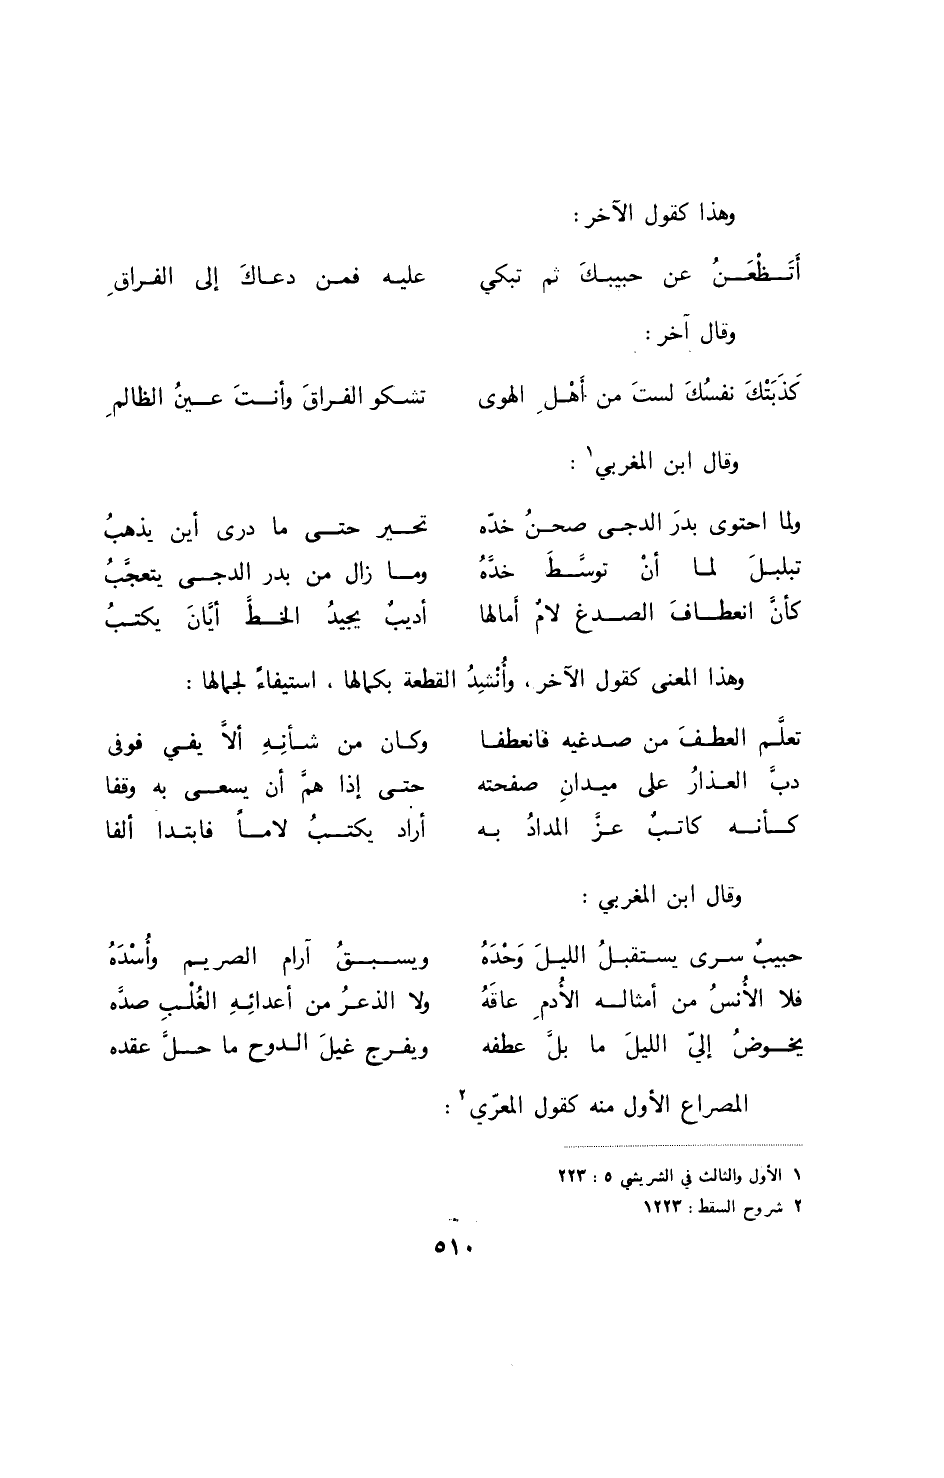 وهذا كقول الآخر :
أَتَظْعَنُ عن حبيبكَ ثم تبكي عليه فمن دعاكَ إلى الفراقِ
وقال آخر :
كَذَبَتْكَ نفسُكَ لستَ من أَهْلِ الهوى تشكو الفراقَ وأنتَ عينُ الظالمِ
وقال ابن المغربي١ :
ولما احتوى بدرَ الدجى صحنُ خدّه تحير حتى ما درى أين يذهبُ
تبلبلَ لما أنْ توسَّطَ خدَّهُ وما زال من بدر الدجى يتعجَّبُ
كأنَّ انعطافَ الصدغ لامٌ أمالها أديبٌ يجيدُ الخطَّ أيَّانَ يكتبُ
وهذا المعنى كقول الآخر ، وأُنْشِدُ القطعة بكمالها ، استيفاءً لجمالها :
تعلَّم العطفَ من صدغيه فانعطفا وكان من شأنِهِ ألاَّ يفي فوفى
دبَّ العذارُ على ميدانِ صفحته حتى إذا همَّ أن يسعى به وقفا
كأنه كاتبٌ عزَّ المدادُ به أراد يكتبُ لاماً فابتدا ألفا
وقال ابن المغربي :
حبيبٌ سرى يستقبلُ الليلَ وَحْدَهُ ويسبقُ آرام الصريم وأُسْدَهُ
فلا الأُنسُ من أمثاله الأُدمِ عاقَهُ ولا الذعرُ من أعدائِهِ الغُلْبِ صدَّه
يخوضُ إليّ الليلَ ما بلَّ عطفه ويفرج غيلَ الدوح ما حلَّ عقده
المصراع الأول منه كقول المعرّي٢ :
١ الأول والثالث في الشريشي ٥ : ٢٢٣
٢ شروح السقط : ١٢٢٣
٥١٠